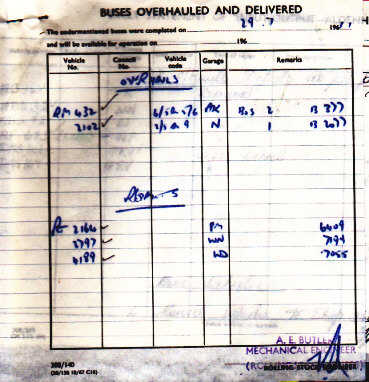 BUSES OVERHAULED AND DELIVERED
The undermentioned buses were completed on 29.7 196
and will be available for operation on 196
Vehicle No. Council No. Vehicle code Garage Remarks
OVERHAULS
RM 432 ✓ 6/5 AK Bos 2 B 377
2102 ✓ 2/5 R 9 N 1 B 2077
REPAINTS
2164 ✓ PM 6409
2797 ✓ WN 7191
4189 ✓ WD 7055
A. E. BUTLER
MECHANICAL ENGINEER
ROLLING STOCK ENGINEER
300/140
(20/150 10/67 C18)